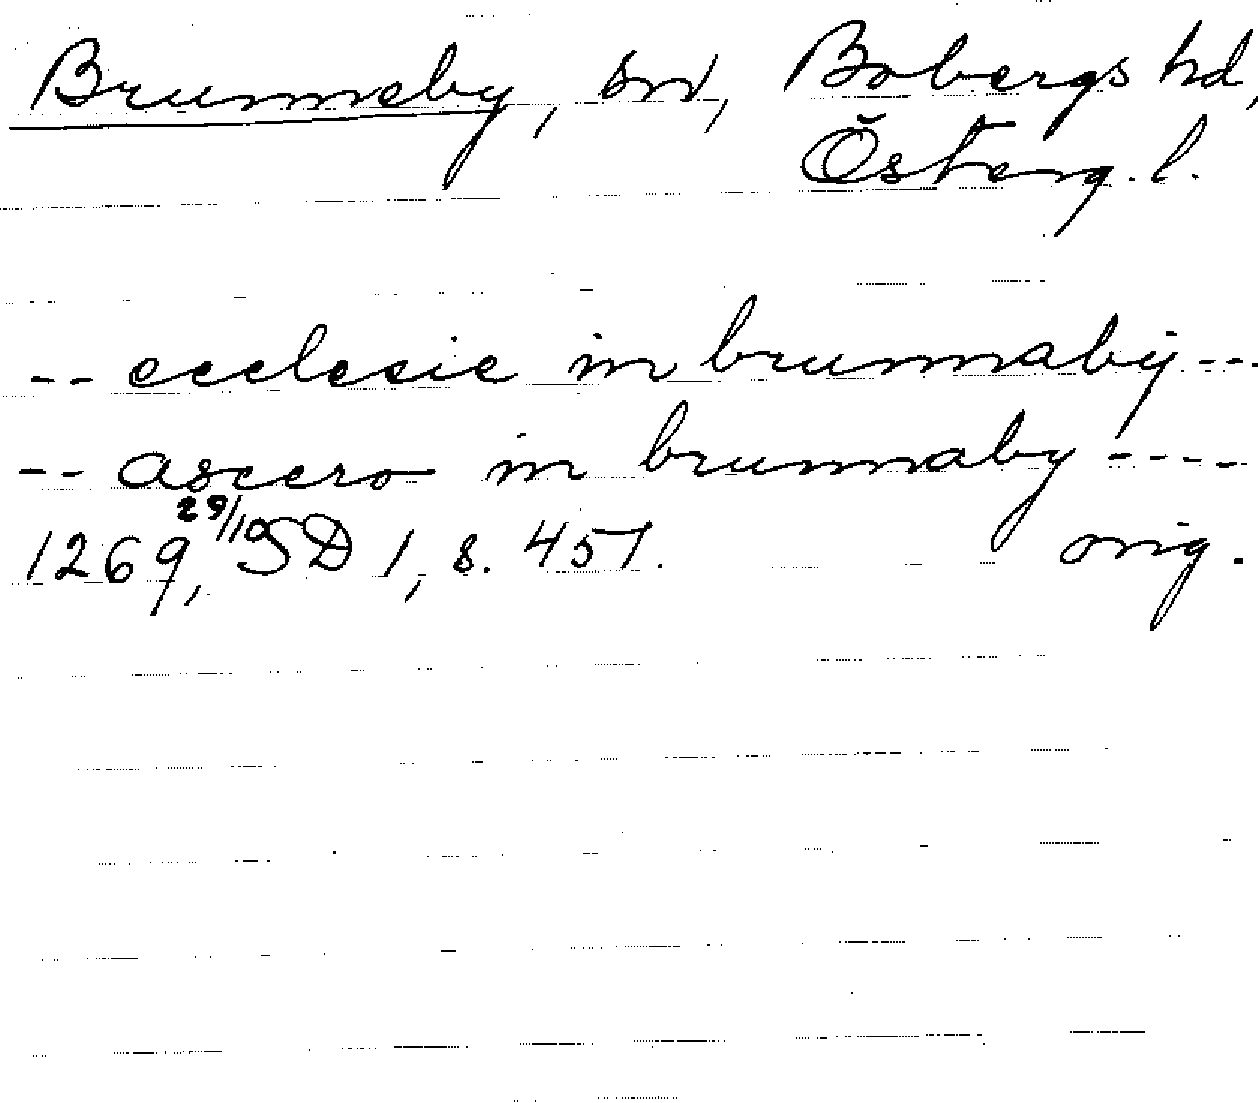 Brunneby, sn, Bobergs hd,
Österg. l.
-- ecclesie in brunnaby ---
-- ascero in brunnaby ----
1269, 29/10 SD 1, s. 451. orig.